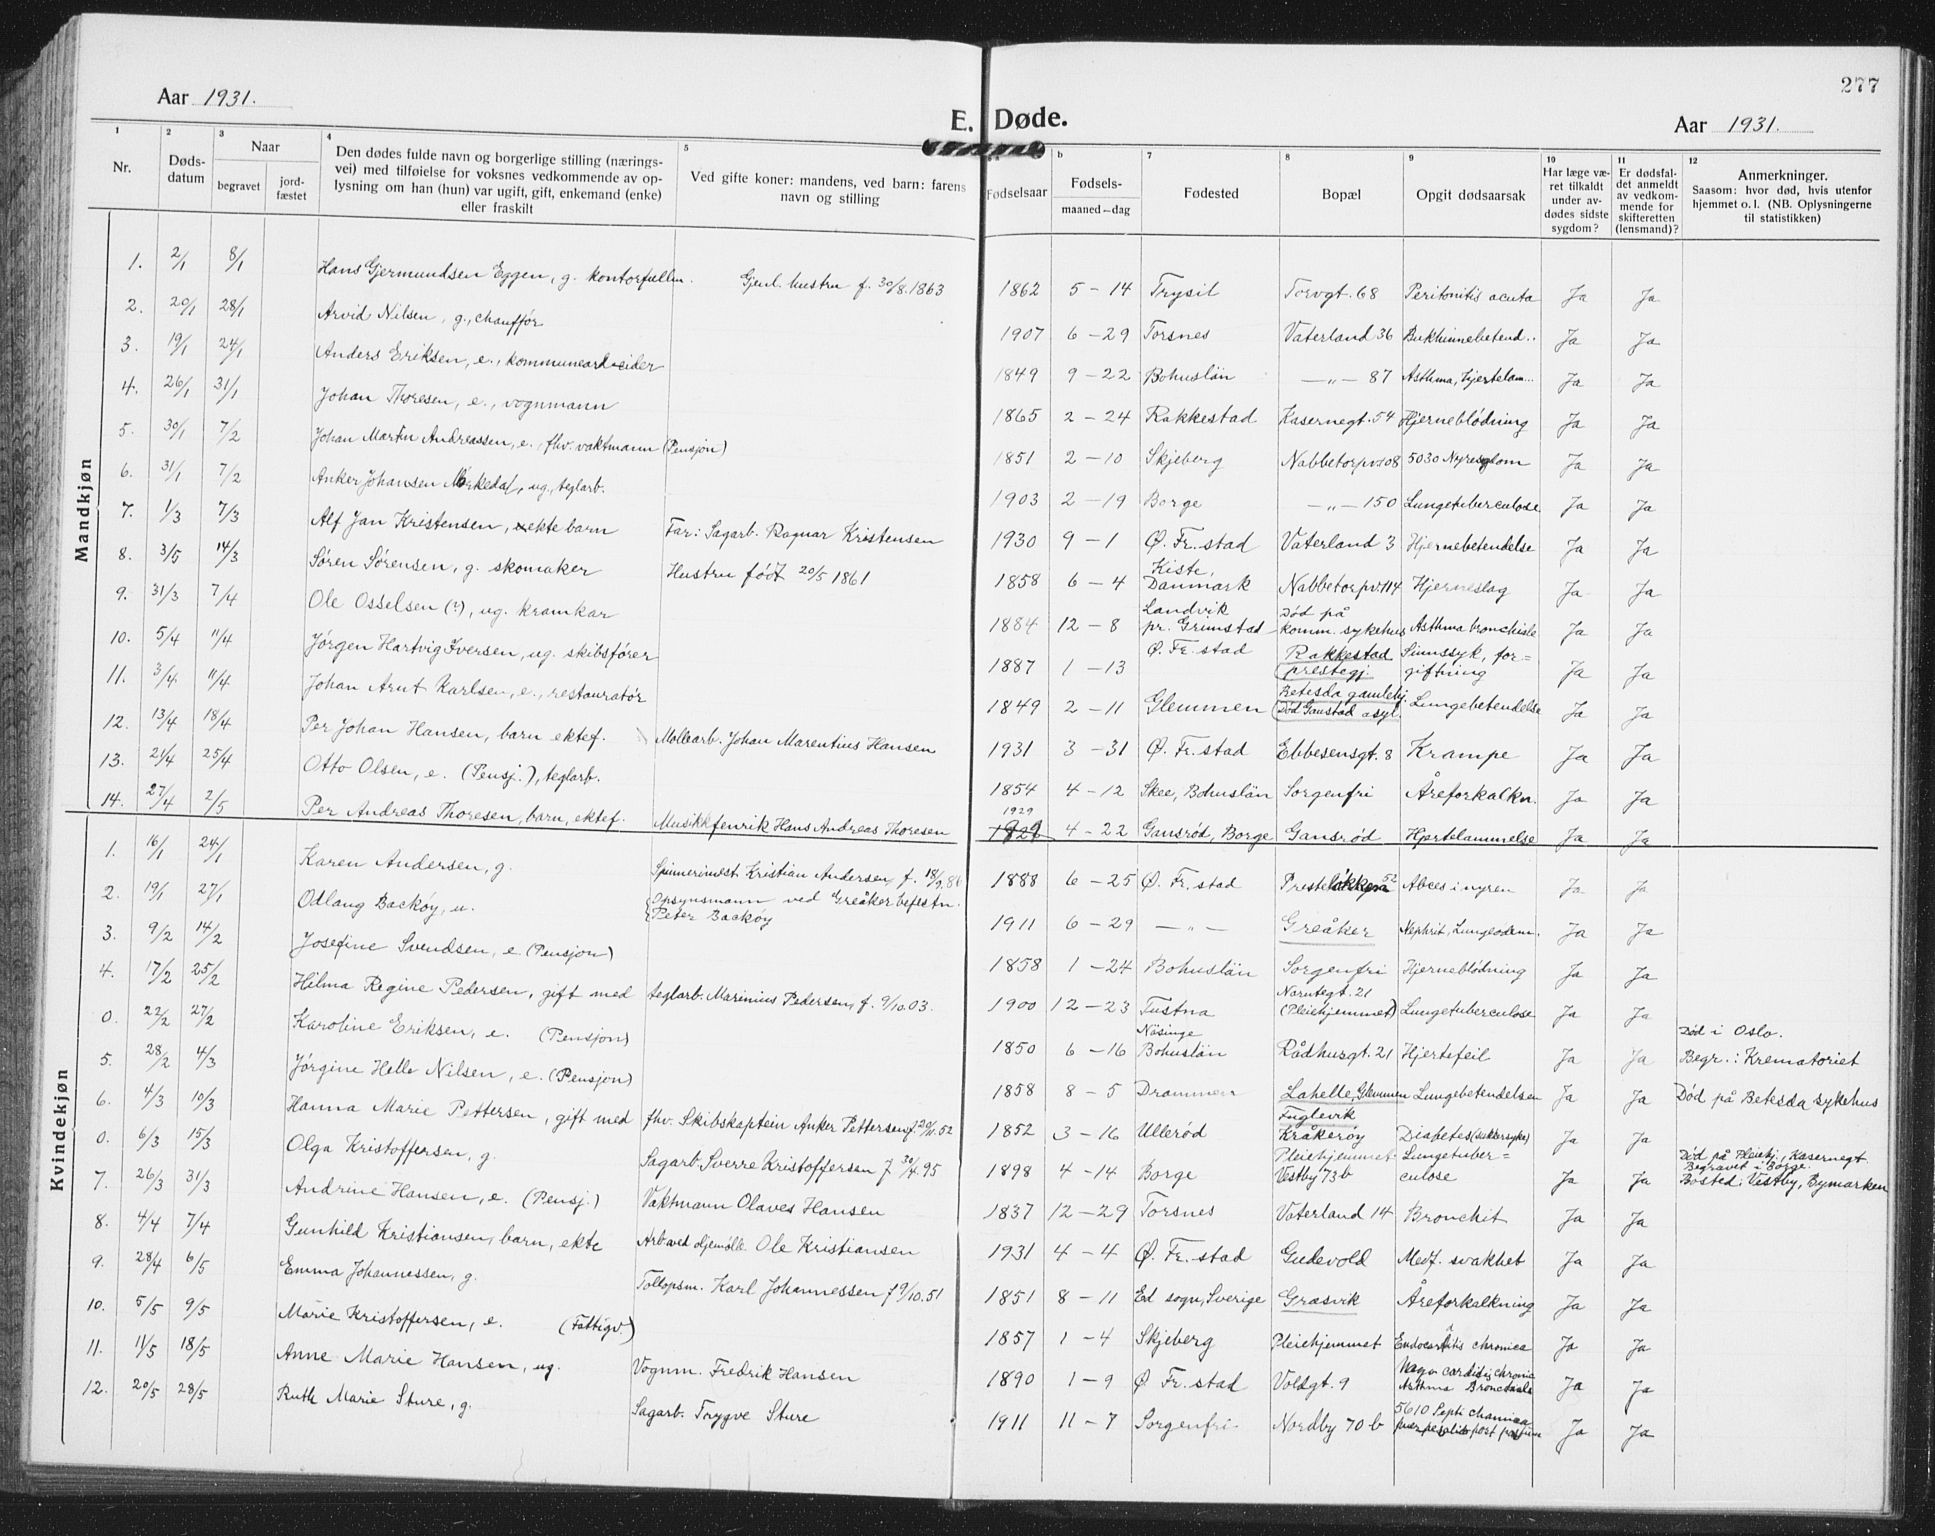 277
Aar 1931.
E. Døde.
Aar 1931.
1 2 3 4 5 b 7 8 9 10 11 12
Nr.
Døds-
datum
Naar
begravet
jord-
fæstet
Den dødes fulde navn og borgerlige stilling (nærings-
vei) med tilføielse for voksnes vedkommende av op-
lysning om han (hun) var ugift, gift, enkemand (enke)
eller fraskilt
Ved gifte koner: mandens, ved barn: farens
navn og stilling
Fødselsaar
Fødsels-
maaned – dag
Fødested
Bopæl
Opgit dødsaarsak
Har læge væ-
ret tilkaldt
under av-
dødes sidste
sygdom?
Er dødsfal-
det anmeldt
av vedkom-
mende for
skifteretten
(lensmand)?
Anmerkninger.
Saasom: hvor død, hvis utenfor
hjemmet o. l. (NB. Oplysningerne
til statistikken)
Mandkjøn
1. 2/1 8/1 Hans Gjermundsen Eggen, g. kontorfullm. Gjenl. hustru f. 30/8.1863 1862 5 – 14 Trysil Torvgt. 68 Peritonitis acuta Ja Ja
2. 20/1 28/1 Arvid Nilsen, g., chauffør 1907 6 – 29 Torsnes Vaterland 36 Bukhinnebetend.. Ja Ja
3. 19/1 24/1 Anders Eriksen, e., kommunearbeider 1849 9 – 22 Bohuslän —"— 87 Asthma, Hjertelam... Ja Ja
4. 26/1 31/1 Johan Thoresen, e., vognmann 1865 2 – 24 Rakkestad Kasernegt. 54 Hjerneblödning Ja Ja
5. 30/1 7/2 Johan Martin Andreassen, e., fhv. vaktmann (Pensjon) 1851 2 – 10 Skjeberg Nabbetorpv 108 5030 Ja Ja
6. 31/1 7/2 Anker Johansen Mörkedal, ug., teglarb. 1903 2 – 19 Borge —"— 150 Lungetuberculose Ja Ja
7. 1/3 7/3 Alf Jan Kristensen, ekte barn Far: Sagarb. Ragnar Kristensen 1930 9 – 1 Ø. Fr. stad Vaterland 3 Hjernebetendelse Ja Ja
8. 3/5 14/3 Søren Sørensen, g. skomaker Hustru født 20/5 1861 1858 6 – 4 Kiste, Danmark Nabbetorpv. 114 Hjerneslag Ja Ja
9. 31/3 7/4 Ole Osselsen (?), ug. kramkar 1884 12 – 8 Landvik pr. Grimstad Død på komm. sykehus Asthma bronchiale Ja Ja
10. 5/4 11/4 Jörgen Hartvig Iversen, ug. skibsfører 1887 1 – 13 Ø. Fr. stad Rakkestad prestegj. Sinnssyk, for= giftning Ja Ja
11. 3/4 11/4 Johan Arnt Karlsen, e., restauratør 1849 2 – 11 Glemmen Betesda gamlehj. (Død Gaustad asyl. Lungebetendelse Ja Ja
12. 13/4 18/4 Per Johan Hansen, barn ektef. Möllearb. Johan Marentius Hansen 1931 3 – 31 Ø. Fr. stad Ebbesensgt. 8 Krampe Ja Ja
13. 21/4 25/4 Otto Olsen, e. (Pensj.), teglarb. 1854 4 – 12 Skee, Bohuslän Sorgenfri Åreforkalkn. Ja Ja
14. 27/4 2/5 Per Andreas Thoresen, barn, ektef. Musikkfenrik Hans Andreas Thoresen 1929 4 – 22 Gansrød, Borge Gansrød Hjertelammelse Ja Ja
Kvindekjøn
1. 16/1 24/1 Karen Andersen, g. Spinnerimest. Kristian Andersen, f. 18/9.86 1888 6 – 25 Ø. Fr. stad Presteløkken 52 Abces i nyren Ja Ja
2. 19/1 27/1 Odlaug Backöy, u. Opsynsmann ved Greåker befestn. Peter Backöy 1911 6 – 29 —"— Greåker Nephrit, Lungeödem. Ja Ja
3. 9/2 14/2 Josefine Svendsen, e. (Pensjon) 1858 1 – 24 Bohuslän Sorgenfri Hjerneblödning Ja Ja
4. 17/2 25/2 Hilma Regine Pedersen, gift med teglarb. Marinius Pedersen, f. 9/10.03. 1900 12 – 23 Tustna Narutegt. 21 (Pleiehjemmet) Lungetuberculose Ja Ja
0. 22/2 27/2 Karoline Eriksen, e. (Pensjon) 1850 6 – 16 Näsinge Bohuslän Rådhusgt. 21 Hjertefeil Ja Ja Død i Oslo. Begr. i Krematoriet
5. 28/2 4/3 Jörgine Helle Nilsen, e. (Pensjon) 1858 8 – 5 Drammen Lahelle, Glemmen Lungebetendelsen Ja Ja Død på Betesda sykehus
6. 4/3 10/3 Hanna Marie Pettersen, gift med fhv. Skibskaptein Anker Pettersen f. 20/11.52 1852 3 – 16 Ullerød Fuglevik Kråkeröy Diabetes (sukkersyke) Ja Ja
0. 6/3 15/3 Olga Kristoffersen, g. Sagarb. Sverre Kristoffersen f 30/4.95 1898 4 – 14 Borge Pleiehjemmet Vestby 73 b Lungetuber= culose Ja Ja Død på Pleiehj., Kasernegt. Begravet i Borge. Bosted: Vestby, Bymarken
7. 26/3 31/3 Andrine Hansen, e. (Pensj.) Vaktmann Olaves Hansen 1837 12 – 29 Torsnes Vaterland 14 Bronchit Ja Ja
8. 4/4 7/4 Gunhild Kristiansen, barn, ekte Arb. ved oljemölle Ole Kristiansen 1931 4 – 4 Ø. Fr. stad Gudevold Medf. svakhet Ja Ja
9. 28/4 6/5 Emma Johannessen, g. Tollopsm. Karl Johannessen f 9/10.51 1851 8 – 11 Ed sogn, Sverige Græsvik Åreforkalkning Ja Ja
10. 5/5 9/5 Marie Kristoffersen, e. (Fattigv.) 1857 1 – 4 Skjeberg Pleiehjemmet Endocarditis chronica Ja Ja
11. 11/5 18/5 Anne Marie Hansen, ug. Vognm. Fredrik Hansen 1890 1 – 9 Ø Fr. stad Voldgt. 9 chronica Asthma Bronchiale Ja Ja
12. 20/5 28/5 Ruth Marie Sture, g. Sagarb. Trygve Sture 1911 11 – 7 Sorgenfri Nordby 70 b 5610 post partum Ja Ja